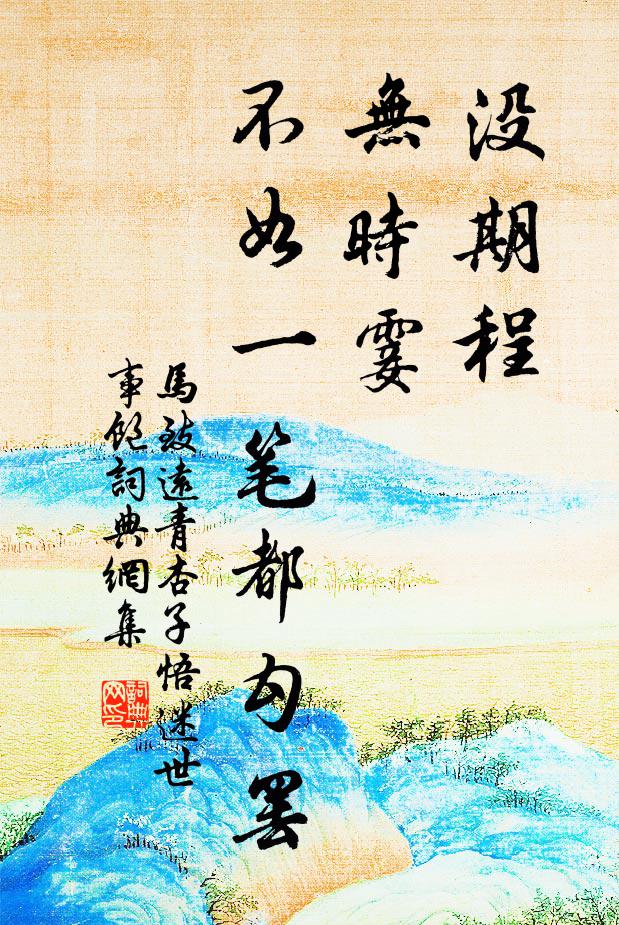 没期程
無時霎
不如一笔都勾罢
馬致遠青杏子悟迷世
事飽詞典網集
詞典网印